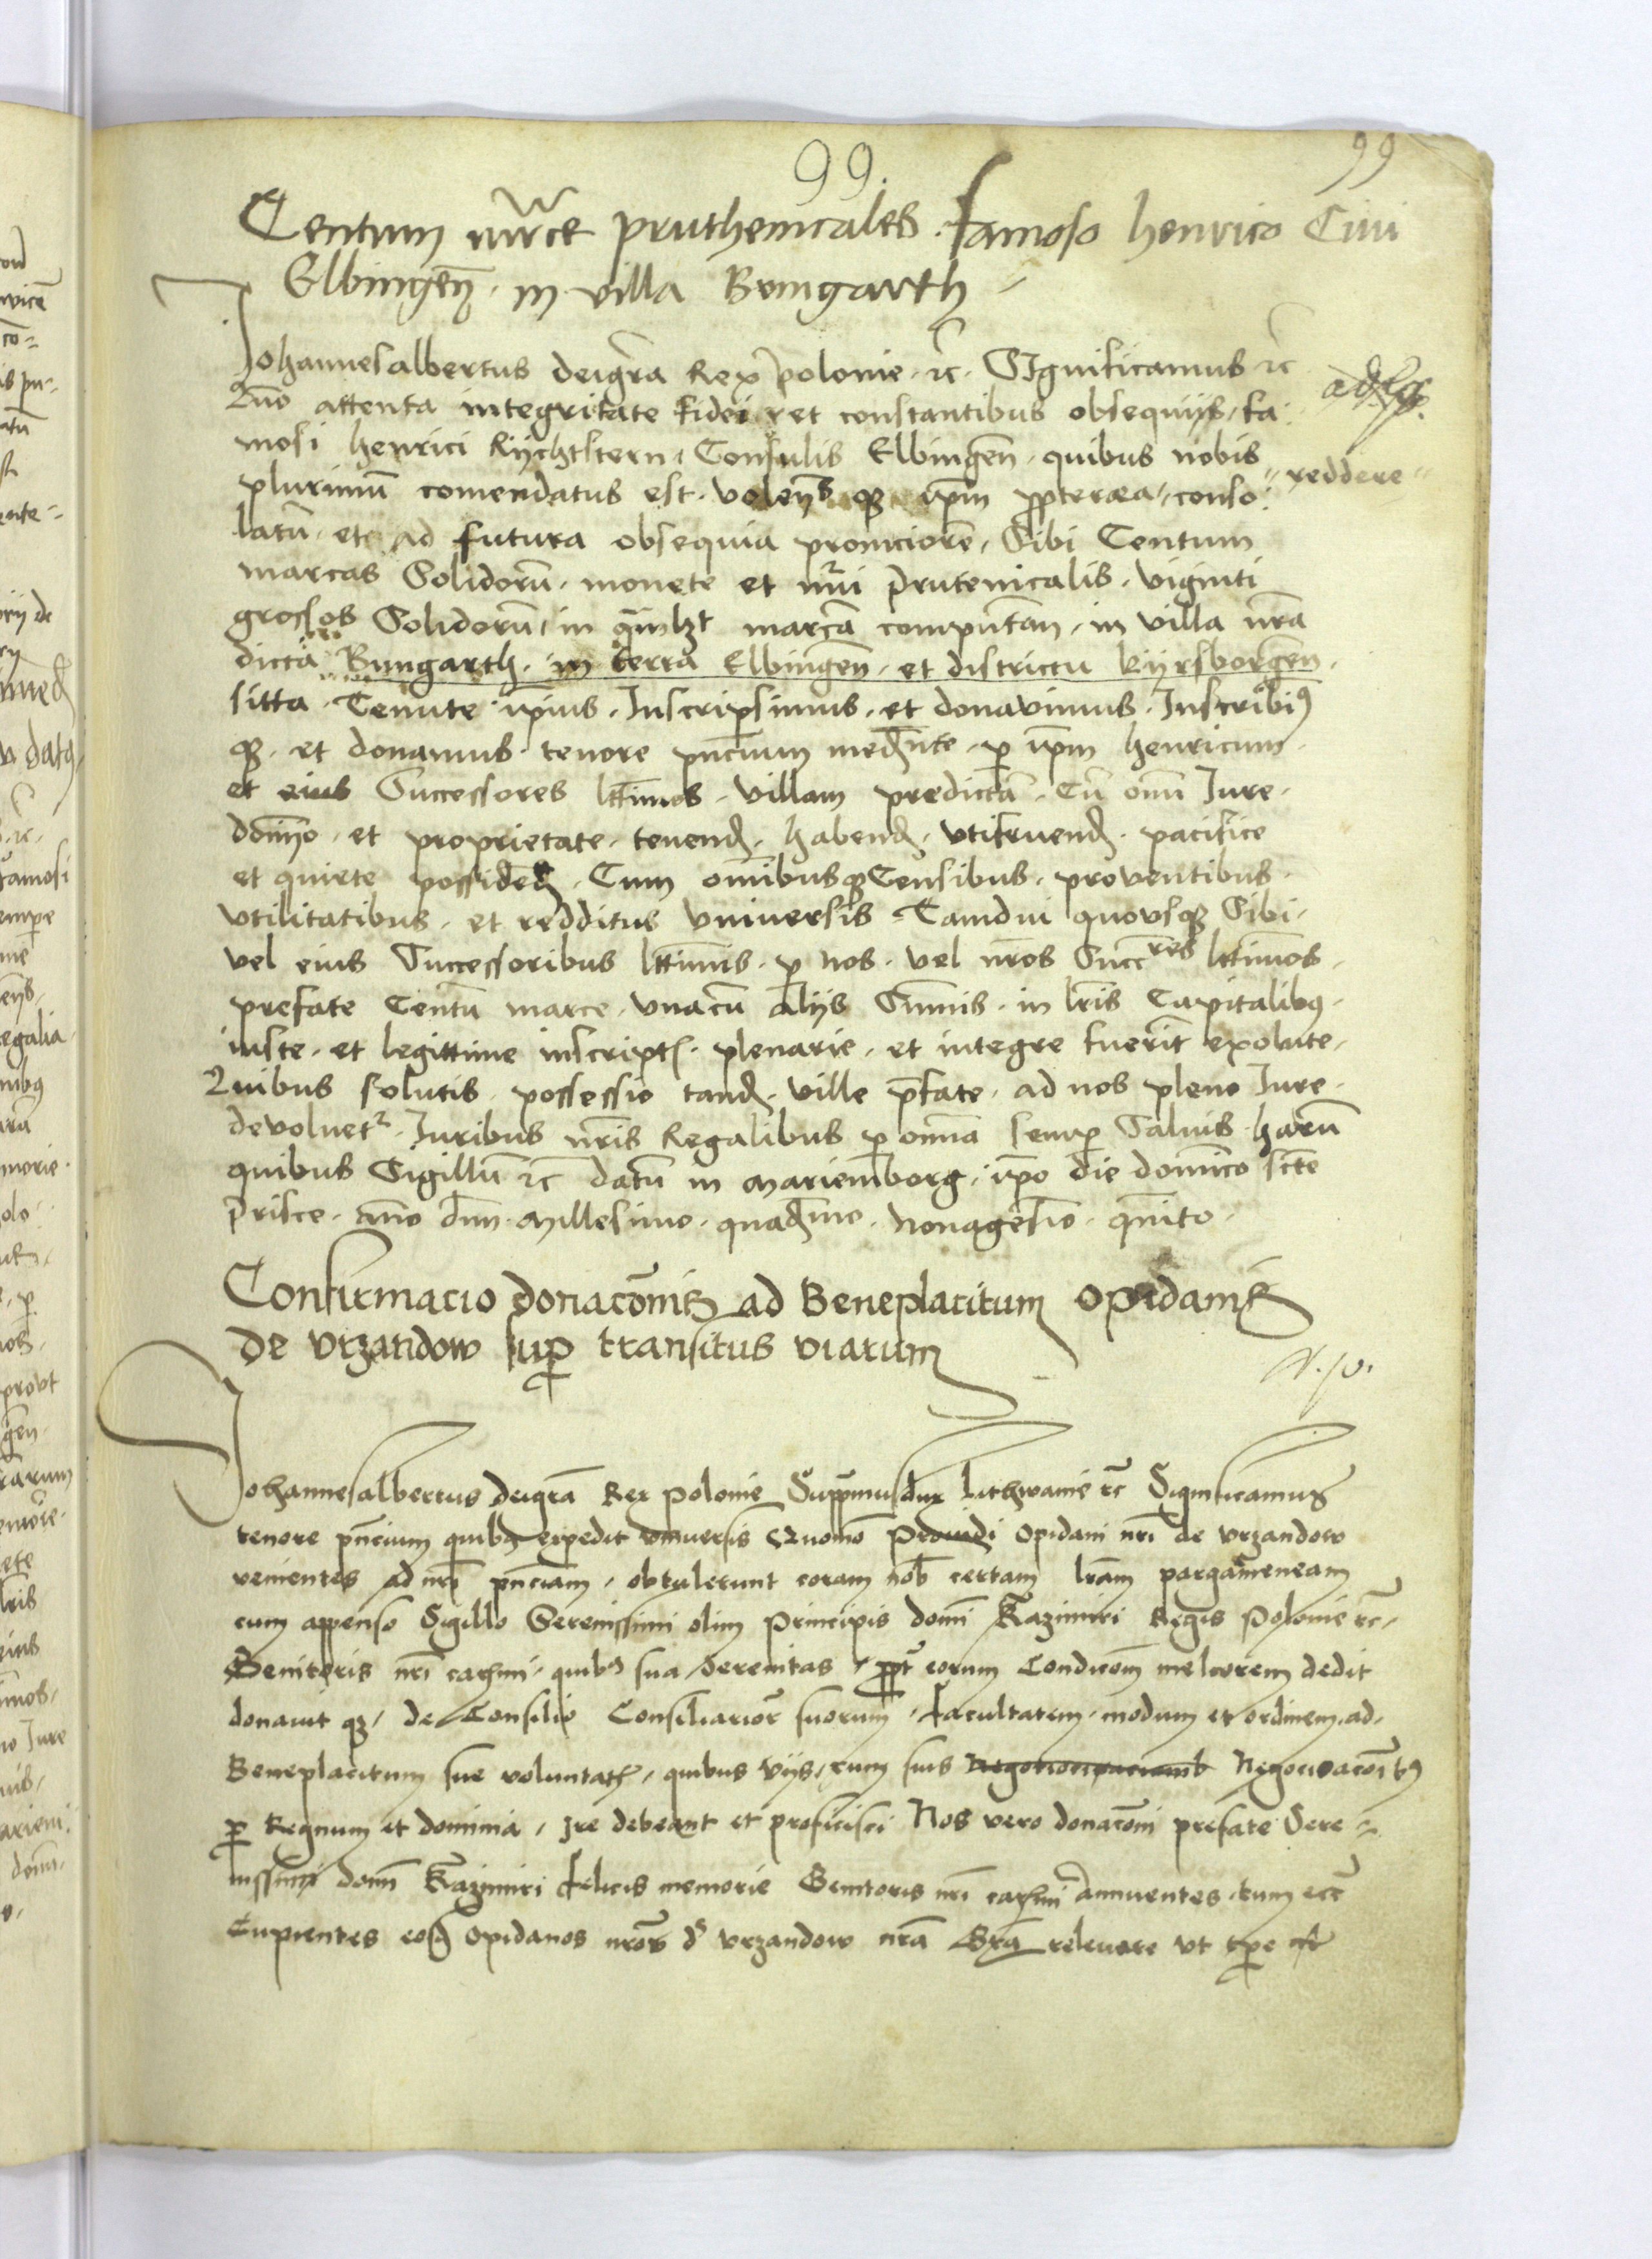 99.
99
Centum mrce pruthenicales famoso henrico Ciui
Elbingen̄. in villa Bomgarth
Johannesalbertus deigr̄a Rex polonie. rc̄. SIgnificamus rc̄
Quō attenta integritate fidei et constantibus obsequijs, fa:
mosi henrici Rÿchtstern, Consulis Elbingen̄. quibus nobis
plurimū comendatus est. volen̄s qȝ ip̄m ꝓpterea, conso: reddere
latū. et ad futura obsequia promciorē, Sibi Centum
marcas Solidorū. monete et nr̄i prutenicalis. viginti
grossos Solidorū, in qͣmlȝt marcā computan̄. in villa nr̄a
dictā Bungarth. in terra Elbingen̄. et districtu kÿrsborgen̄.
sitta. Tenute ip̄ius. Inscripsimus. et donavimus. Inscribiꝰ
qȝ. et donamus. tenore pn̄cium med̄nte. p̱ ip̄m henricum.
et eius Successores lt̄timos. villam predictā. Cū om̄i Iure.
dominō. et proprietate. tenend̄. habend̄. vtifruend̄. pacifice
et quiete possided̄. Cum om̄ibusqȝ Censibus. proventibus.
vtilitatibus. et redditus vniversis Tamdiu quovsqȝ Sibi.
vel eius Successoribus lt̄timis. p̱ nos. vel nr̄os Succ̄res lt̄timos.
prefate Centū marce. vnacū alijs Sum̄is. in lr̄is Capitalibꝰ.
iuste. et legittime inscriptꝭ. plenarie. et integre fuerīt exolute.
Quibus solutis. possessio tand̄. ville p̄fate. ad nos pleno Iure.
devoluetr. Iuribus nr̄is Regalibus p̱ om̄ia semp̱ Saluis harū
quibus Sigillū rc̄ datū in mariemborg. ip̄o die domīco sc̄te
prisce. an̄o dn̄i. Millesimo. quad̄mo. Nonagesīo. qͥnto.
Confirmacio donacōnis ad Beneplacitum opidanis
de vrzandow sup̱ transitus viarum
Johannesalbertus deigrā Rex Polonie Supp̄musdux lithwanie rc̄ Significamus
tenore pn̄cium quibꝰ expedit vniuersis Quomō Prouidi Opidani nr̄i de vrzandow
venientes ad nr̄i pn̄ciam, obtulerunt coram nob̄ certam lr̄am pargameneam
cum appenso Sigillo Serenissimi olim Principis domī Kazimiri Regis Polonie rc̄.
Genitoris nr̄i carͥmi, quibꝰ sua Serenitas, ꝓpt̄ eorum Condicōm meliorem dedit
donauit qȝ, de Consilio Consiliarior suorum, facultatem, modum et ordinem, ad,
Beneplacitum sue voluntatꝭ, quibus vijs, cum suis Negociacōibꝰ
p̱ Regnum et dominia, ire debeant et proficisci Nos vero donacōni prefate Sere=
nissimi domī Kazimiri felicis memorie Genitoris nr̄i carͥmi Annuentes, tum ecc̄
Cupientes eosd̄ Opidanos nr̄os dͤ vrzandow nr̄ā Grā releuare vt